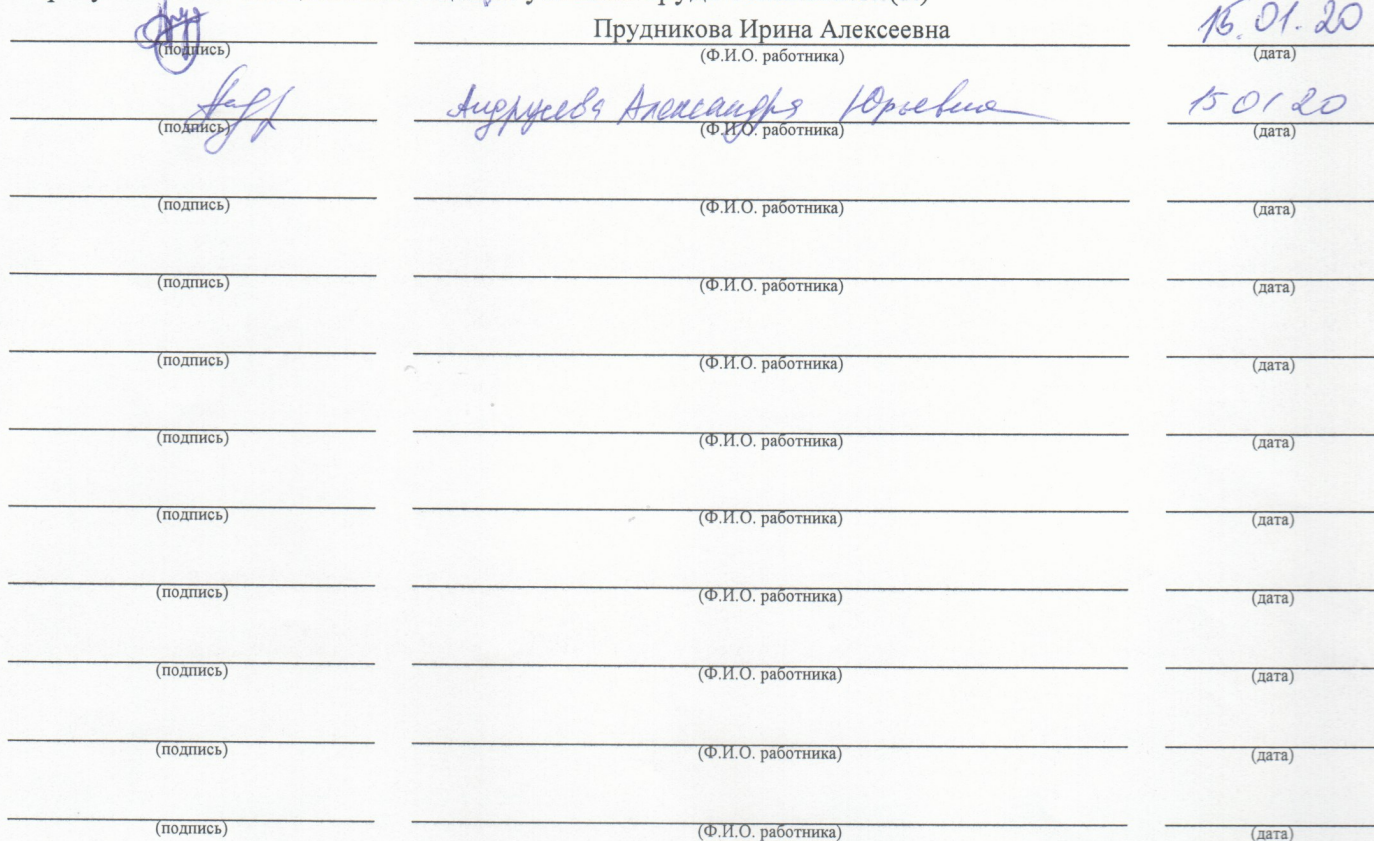 Прудникова Ирина Алексеевна 15.01.20
(подпись) (Ф.И.О. работника) (дата)
Александра Юрьевна 15 01 20
(подпись) (Ф.И.О. работника) (дата)
(подпись) (Ф.И.О. работника) (дата)
(подпись) (Ф.И.О. работника) (дата)
(подпись) (Ф.И.О. работника) (дата)
(подпись) (Ф.И.О. работника) (дата)
(подпись) (Ф.И.О. работника) (дата)
(подпись) (Ф.И.О. работника) (дата)
(подпись) (Ф.И.О. работника) (дата)
(подпись) (Ф.И.О. работника) (дата)
(подпись) (Ф.И.О. работника) (дата)